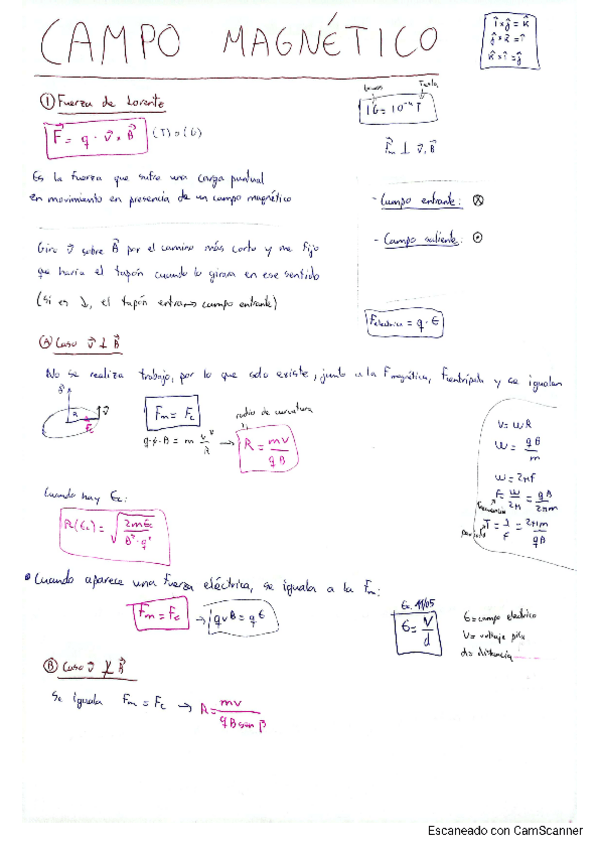 CAMPO MAGNÉTICO
î x ĵ = k̂
ĵ x k̂ = î
k̂ x î = ĵ
① Fuerza de Lorentz
Gauss Tesla
1G = 10⁻⁴ T
F⃗ = q · v⃗ x B⃗ (T) o (G)
F⃗m ⊥ v⃗, B⃗
Es la fuerza que sufre una carga puntual
en movimiento en presencia de un campo magnético
- Campo entrante: ⊗
- Campo saliente: ⊙
Giro v⃗ sobre B⃗ por el camino más corto y me fijo
que haría el tapón cuando lo girara en ese sentido
(Si es ↓, el tapón entra → campo entrante)
Felectrica = q · E
Ⓐ Caso v⃗ ⊥ B⃗
No se realiza trabajo, por lo que solo existe, junto a la Fmagnética, Fcentrípeta y se igualan
Fm = Fc
radio de curvatura
q·v·B = m v²/R → R = mv/qB
v = wR
w = qB/m
w = 2πf
f = w/2π = qB/2πm
frecuencia
periodo T = 1/f = 2πm/qB
Cuando hay Ec:
R(Ec) = √(2mEc/B²·q²)
• Cuando aparece una fuerza eléctrica, se iguala a la Fm:
Fm = Fe → qvB = qE
E = V/d
E = campo electrico
V = voltaje pila
d = distancia
Ⓑ Caso v⃗ ⊥̸ B⃗
Se iguala Fm = Fc → R = mv/qB sen β
Escaneado con CamScanner